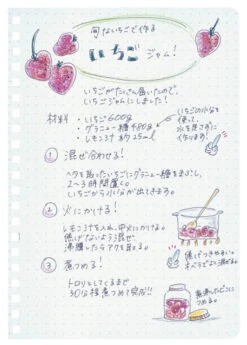 旬ないちごで作る
いちごジャム!
いちごがたくさん届いたので、
いちごジャムにしました!
材料
・いちご600g
・グラニュー糖480g
・レモン汁 約25ml
いちごの水分を
使って、
水を足さずに
作ります!
① 混ぜ合わせる!
ヘタを取ったいちごにグラニュー糖をまぶし、
2〜3時間置く。
いちごから水分が出てきます。
② 火にかける!
レモン汁を入れ、中火にかける。
焦げないよう混ぜ
沸騰したらアクを取る。
焦げつきやすい。
木べらでよく混ぜる。
③ 煮つめる!
トロリとしてくるまで
30分程煮つめて完成!!
煮沸したビンに
つめる。